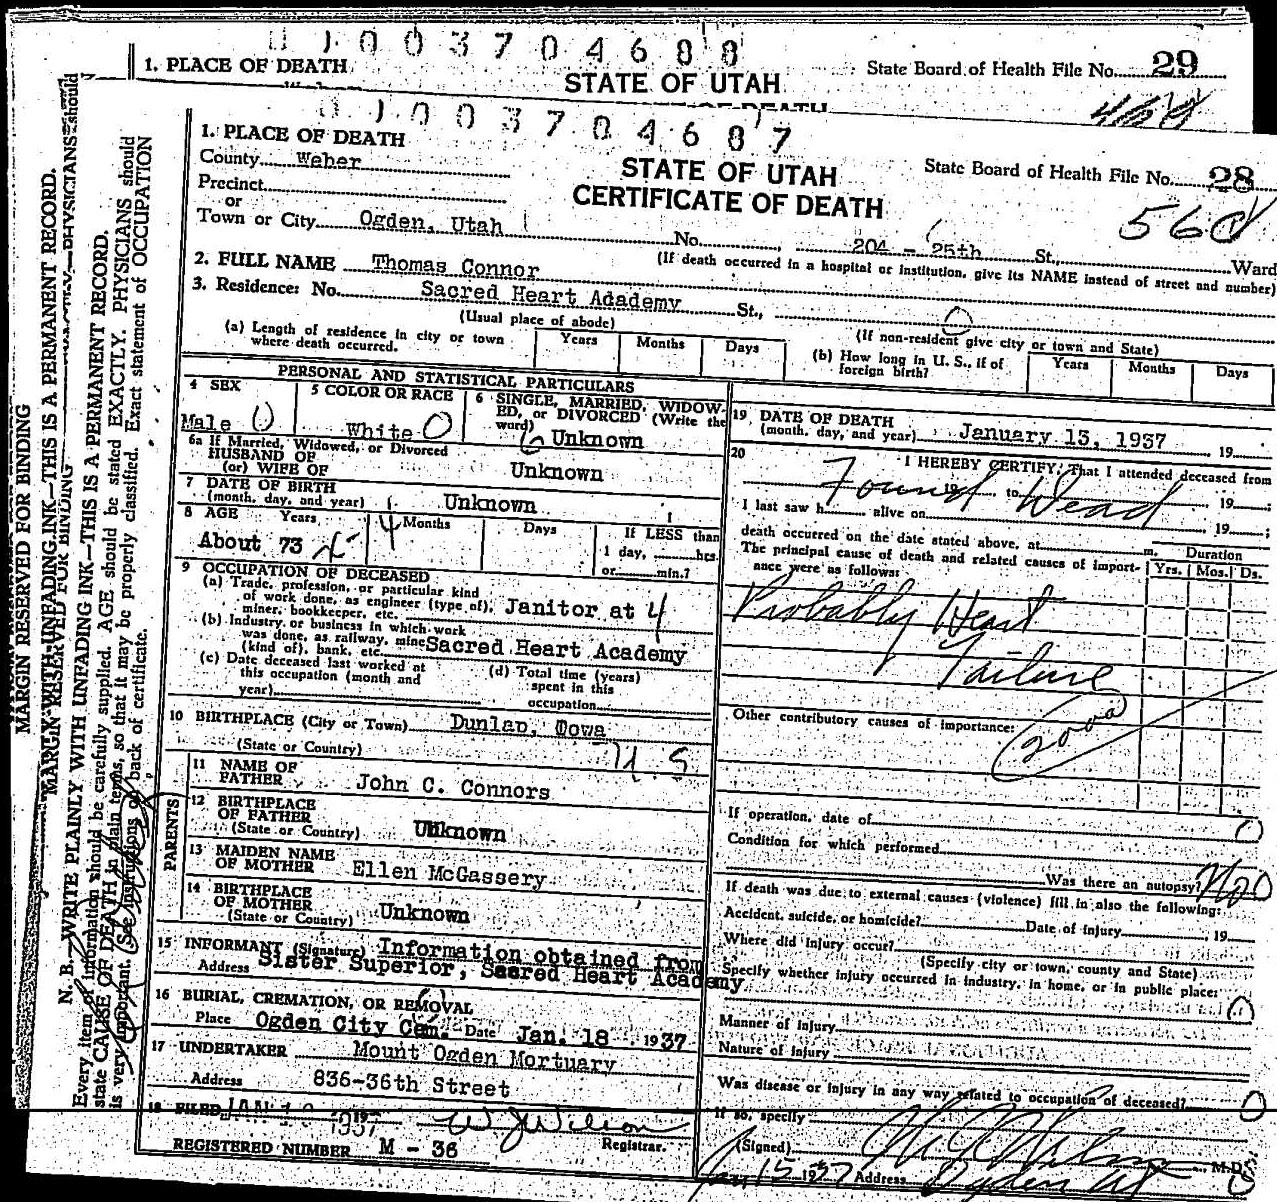 0 1 0 0 3 7 0 4 6 8 8
1. PLACE OF DEATH
STATE OF UTAH
State Board of Health File No. 29
0 1 0 0 3 7 0 4 6 8 7
1. PLACE OF DEATH
County Weber
STATE OF UTAH
State Board of Health File No. 28
Precinct
CERTIFICATE OF DEATH
or
560
Town or City Ogden, Utah No. 204 - 25th St., Ward
(If death occurred in a hospital or institution, give its NAME instead of street and number)
2. FULL NAME Thomas Connor
3. Residence: No. Sacred Heart Adademy St.,
(Usual place of abode)
(If non-resident give city or town and State)
(a) Length of residence in city or town where death occurred. Years Months Days
(b) How long in U. S., if of foreign birth? Years Months Days
PERSONAL AND STATISTICAL PARTICULARS
4 SEX
Male
5 COLOR OR RACE
White
6 SINGLE, MARRIED, WIDOW-
ED, or DIVORCED (Write the
word)
Unknown
6a If Married, Widowed, or Divorced
HUSBAND OF
(or) WIFE OF Unknown
7 DATE OF BIRTH
(month, day, and year) Unknown
8 AGE Years Months Days If LESS than
About 73 1 day, hrs.
or min.?
9 OCCUPATION OF DECEASED
(a) Trade, profession, or particular kind
of work done, as engineer (type of), Janitor at 4
miner, bookkeeper, etc.
(b) Industry, or business in which work
was done, as railway, mine
(kind of), bank, etc. Sacred Heart Academy
(c) Date deceased last worked at
this occupation (month and
year)
(d) Total time (years)
spent in this
occupation
10 BIRTHPLACE (City or Town) Dunlap, Iowa
(State or Country) U. S.
PARENTS
11 NAME OF
FATHER John C. Connors
12 BIRTHPLACE
OF FATHER
(State or Country) Unknown
13 MAIDEN NAME
OF MOTHER Ellen McGassery
14 BIRTHPLACE
OF MOTHER
(State or Country) Unknown
15 INFORMANT (Signature) Information obtained from
Address Sister Superior, Sacred Heart Academy
16 BURIAL, CREMATION, OR REMOVAL
Place Ogden City Cem. Date Jan. 18 1937
17 UNDERTAKER Mount Ogden Mortuary
Address 836-36th Street
18 FILED JAN 1937 W J Wilson
Registrar.
REGISTERED NUMBER M - 36
19 DATE OF DEATH
(month, day, and year) January 13, 1937, 19
20 I HEREBY CERTIFY, That I attended deceased from
Found 19 to Dead 19 ;
I last saw h alive on 19 ;
death occurred on the date stated above, at m.
The principal cause of death and related causes of import-
ance were as follows:
Duration
Yrs. Mos. Ds.
Probably Heart
Failure
Other contributory causes of importance:
200a
If operation, date of
Condition for which performed
Was there an autopsy? No
If death was due to external causes (violence) fill in also the following:
Accident, suicide, or homicide? Date of injury 19
Where did injury occur?
(Specify city or town, county and State)
Specify whether injury occurred in industry, in home, or in public place:
Manner of injury
Nature of injury
Was disease or injury in any way related to occupation of deceased?
If so, specify
(Signed) M.D.
Jan 15 1937 Address Ogden
MARGIN RESERVED FOR BINDING
MARGIN RESERVED FOR BINDING
N. B.—WRITE PLAINLY WITH UNFADING INK—THIS IS A PERMANENT RECORD.
Every item of information should be carefully supplied. AGE should be stated EXACTLY. PHYSICIANS should
state CAUSE OF DEATH in plain terms, so that it may be properly classified. Exact statement of OCCUPATION
is very important. (See instructions on back of certificate.